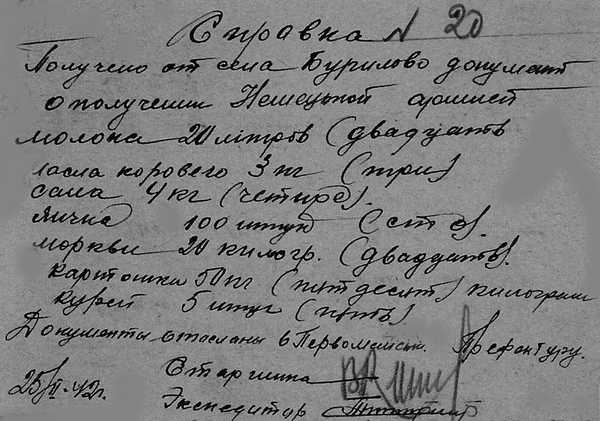 Справка № 20
Получено от села Бурилово документ
о получении Немецькой армией
молока 20 літров (двадцать
масла корового 3 кг (три)
сала 4 кг (четире).
Яичка 100 штук (сто).
моркви 20 килогр. (двадцать).
Картошки 50 кг (пятдесят) килограмм
Курей 5 штук (пять)
Документы отосланы в Первомайськ. Префектуру.
Старшина
25/II-42г.
Экспедитор